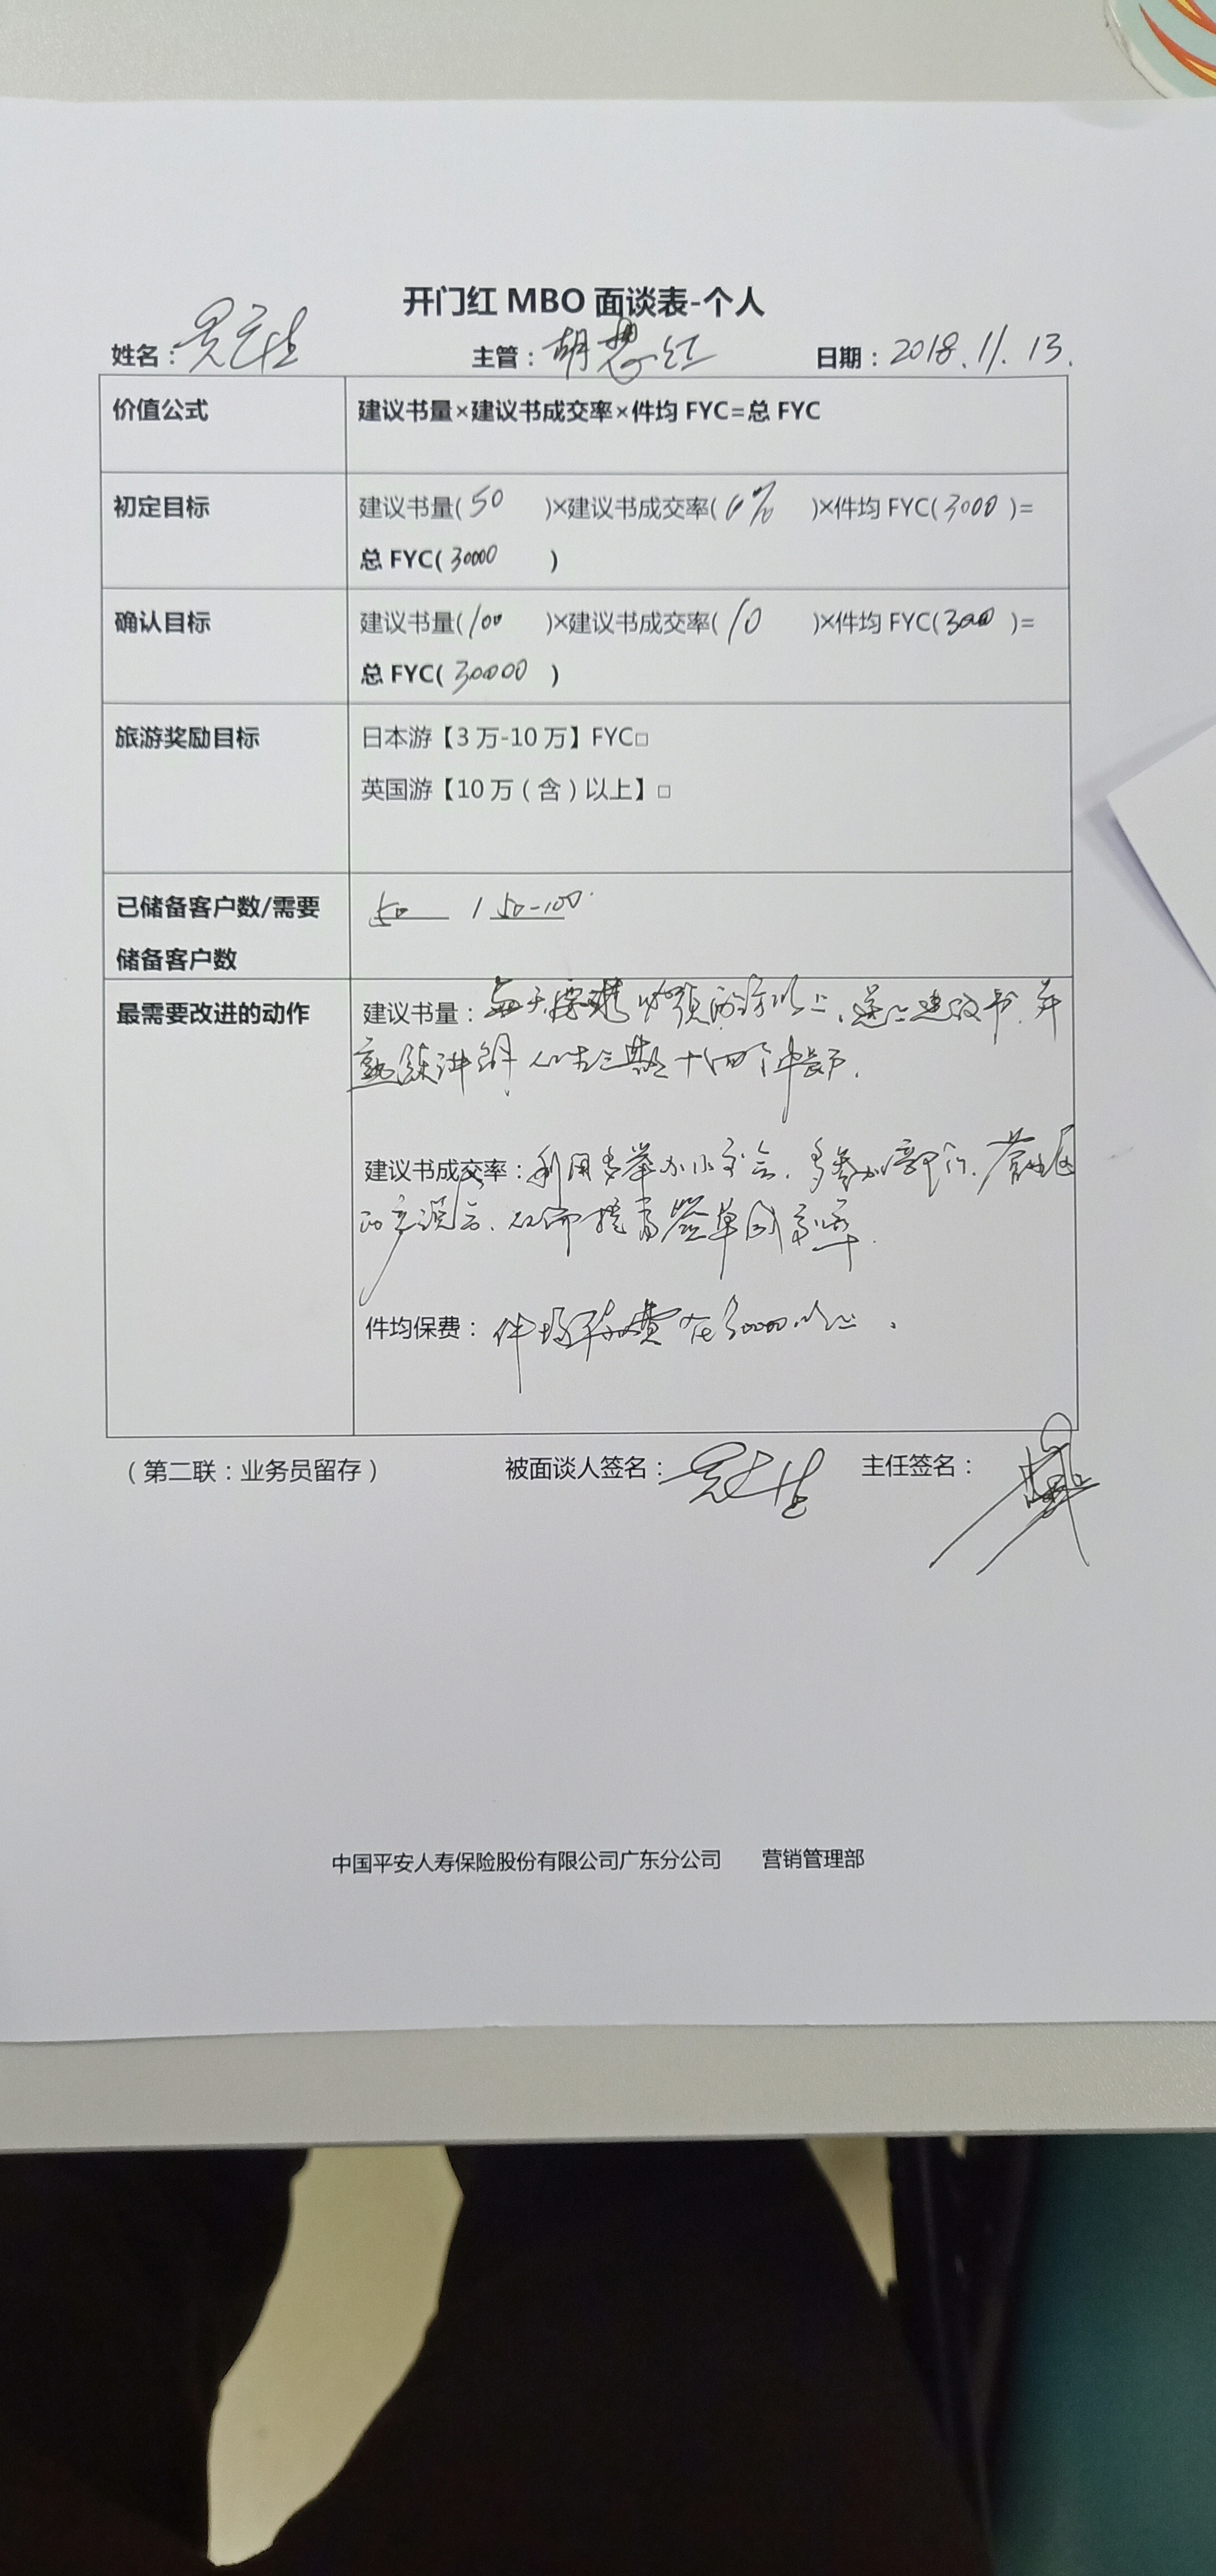 开门红 MBO 面谈表-个人
姓名： 主管：胡慧红 日期：2018.11.13.
价值公式 建议书量×建议书成交率×件均 FYC=总 FYC
初定目标 建议书量( 50 )×建议书成交率( )×件均 FYC( 3000 )=
总 FYC( 30000 )
确认目标 建议书量( 100 )×建议书成交率( 10 )×件均 FYC( 300 )=
总 FYC( 30000 )
旅游奖励目标 日本游【3 万-10 万】FYC□
英国游【10 万（含）以上】□
已储备客户数/需要 50 / 50-100
储备客户数
最需要改进的动作 建议书量：每天 必须 访以上，送上建议书，并
熟练讲解
建议书成交率：利用多举办小 会，多参加
的产说会，从而提高签单成功率.
件均保费：件均保费在 以上.
（第二联：业务员留存） 被面谈人签名： 主任签名：
中国平安人寿保险股份有限公司广东分公司 营销管理部